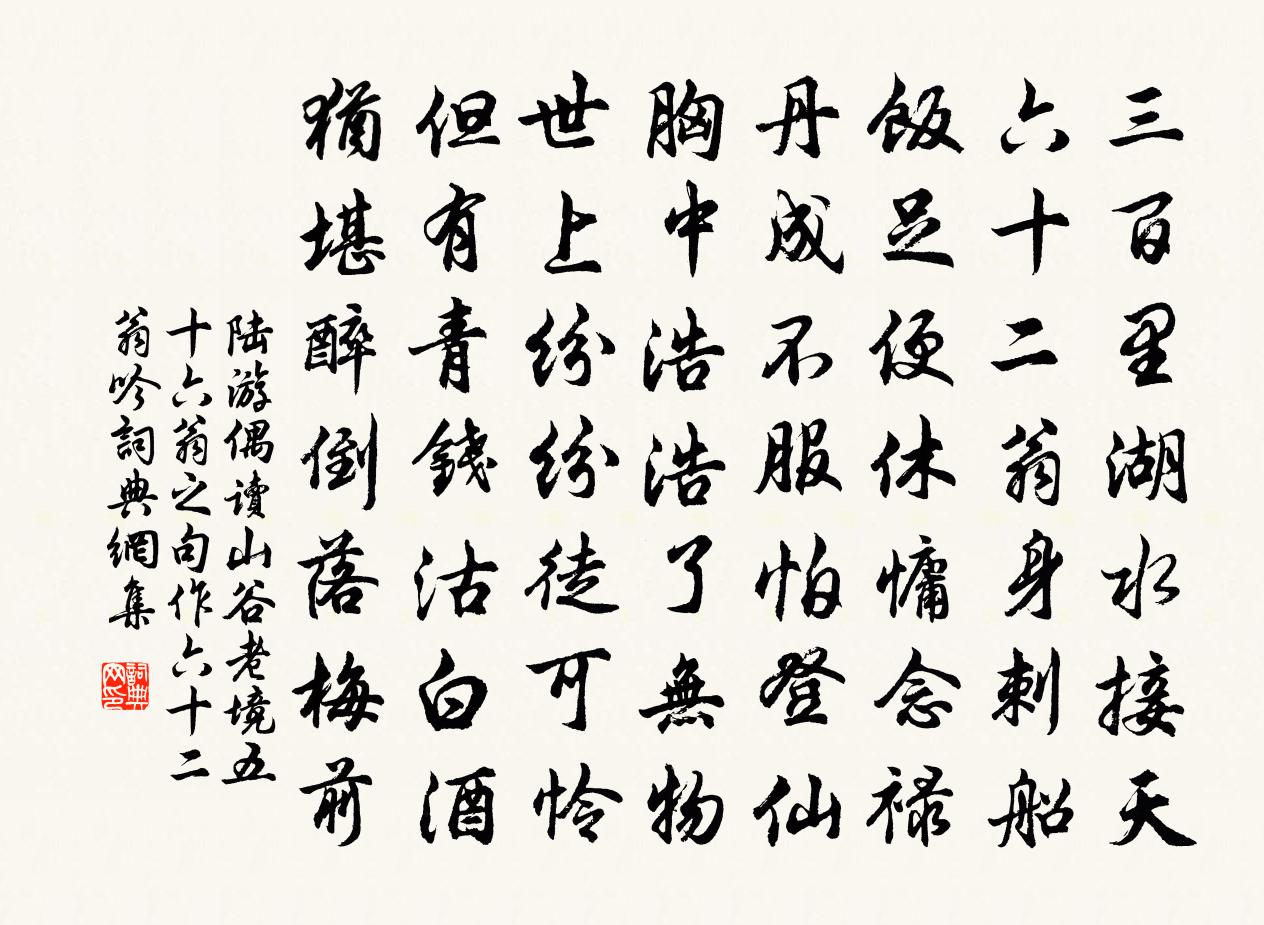 三百里湖水接天
六十二翁身刺船
飯足便休慵念祿
丹成不服怕登仙
胸中浩浩了無物
世上紛紛徒可憐
但有青錢沽白酒
猶堪醉倒落梅前
陸游偶讀山谷老境五
十六翁之句作六十二
翁吟詞典網集
詞典網印